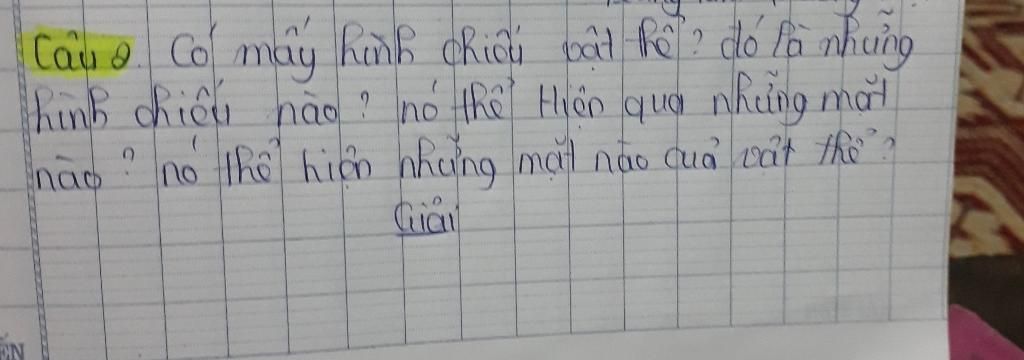 Câu 2. Có mấy hình chiếu vật thể? đó là những
hình chiếu nào? nó thể Hiện qua những mặt
nào? nó thể hiện những mặt nào của vật thể?
Giải